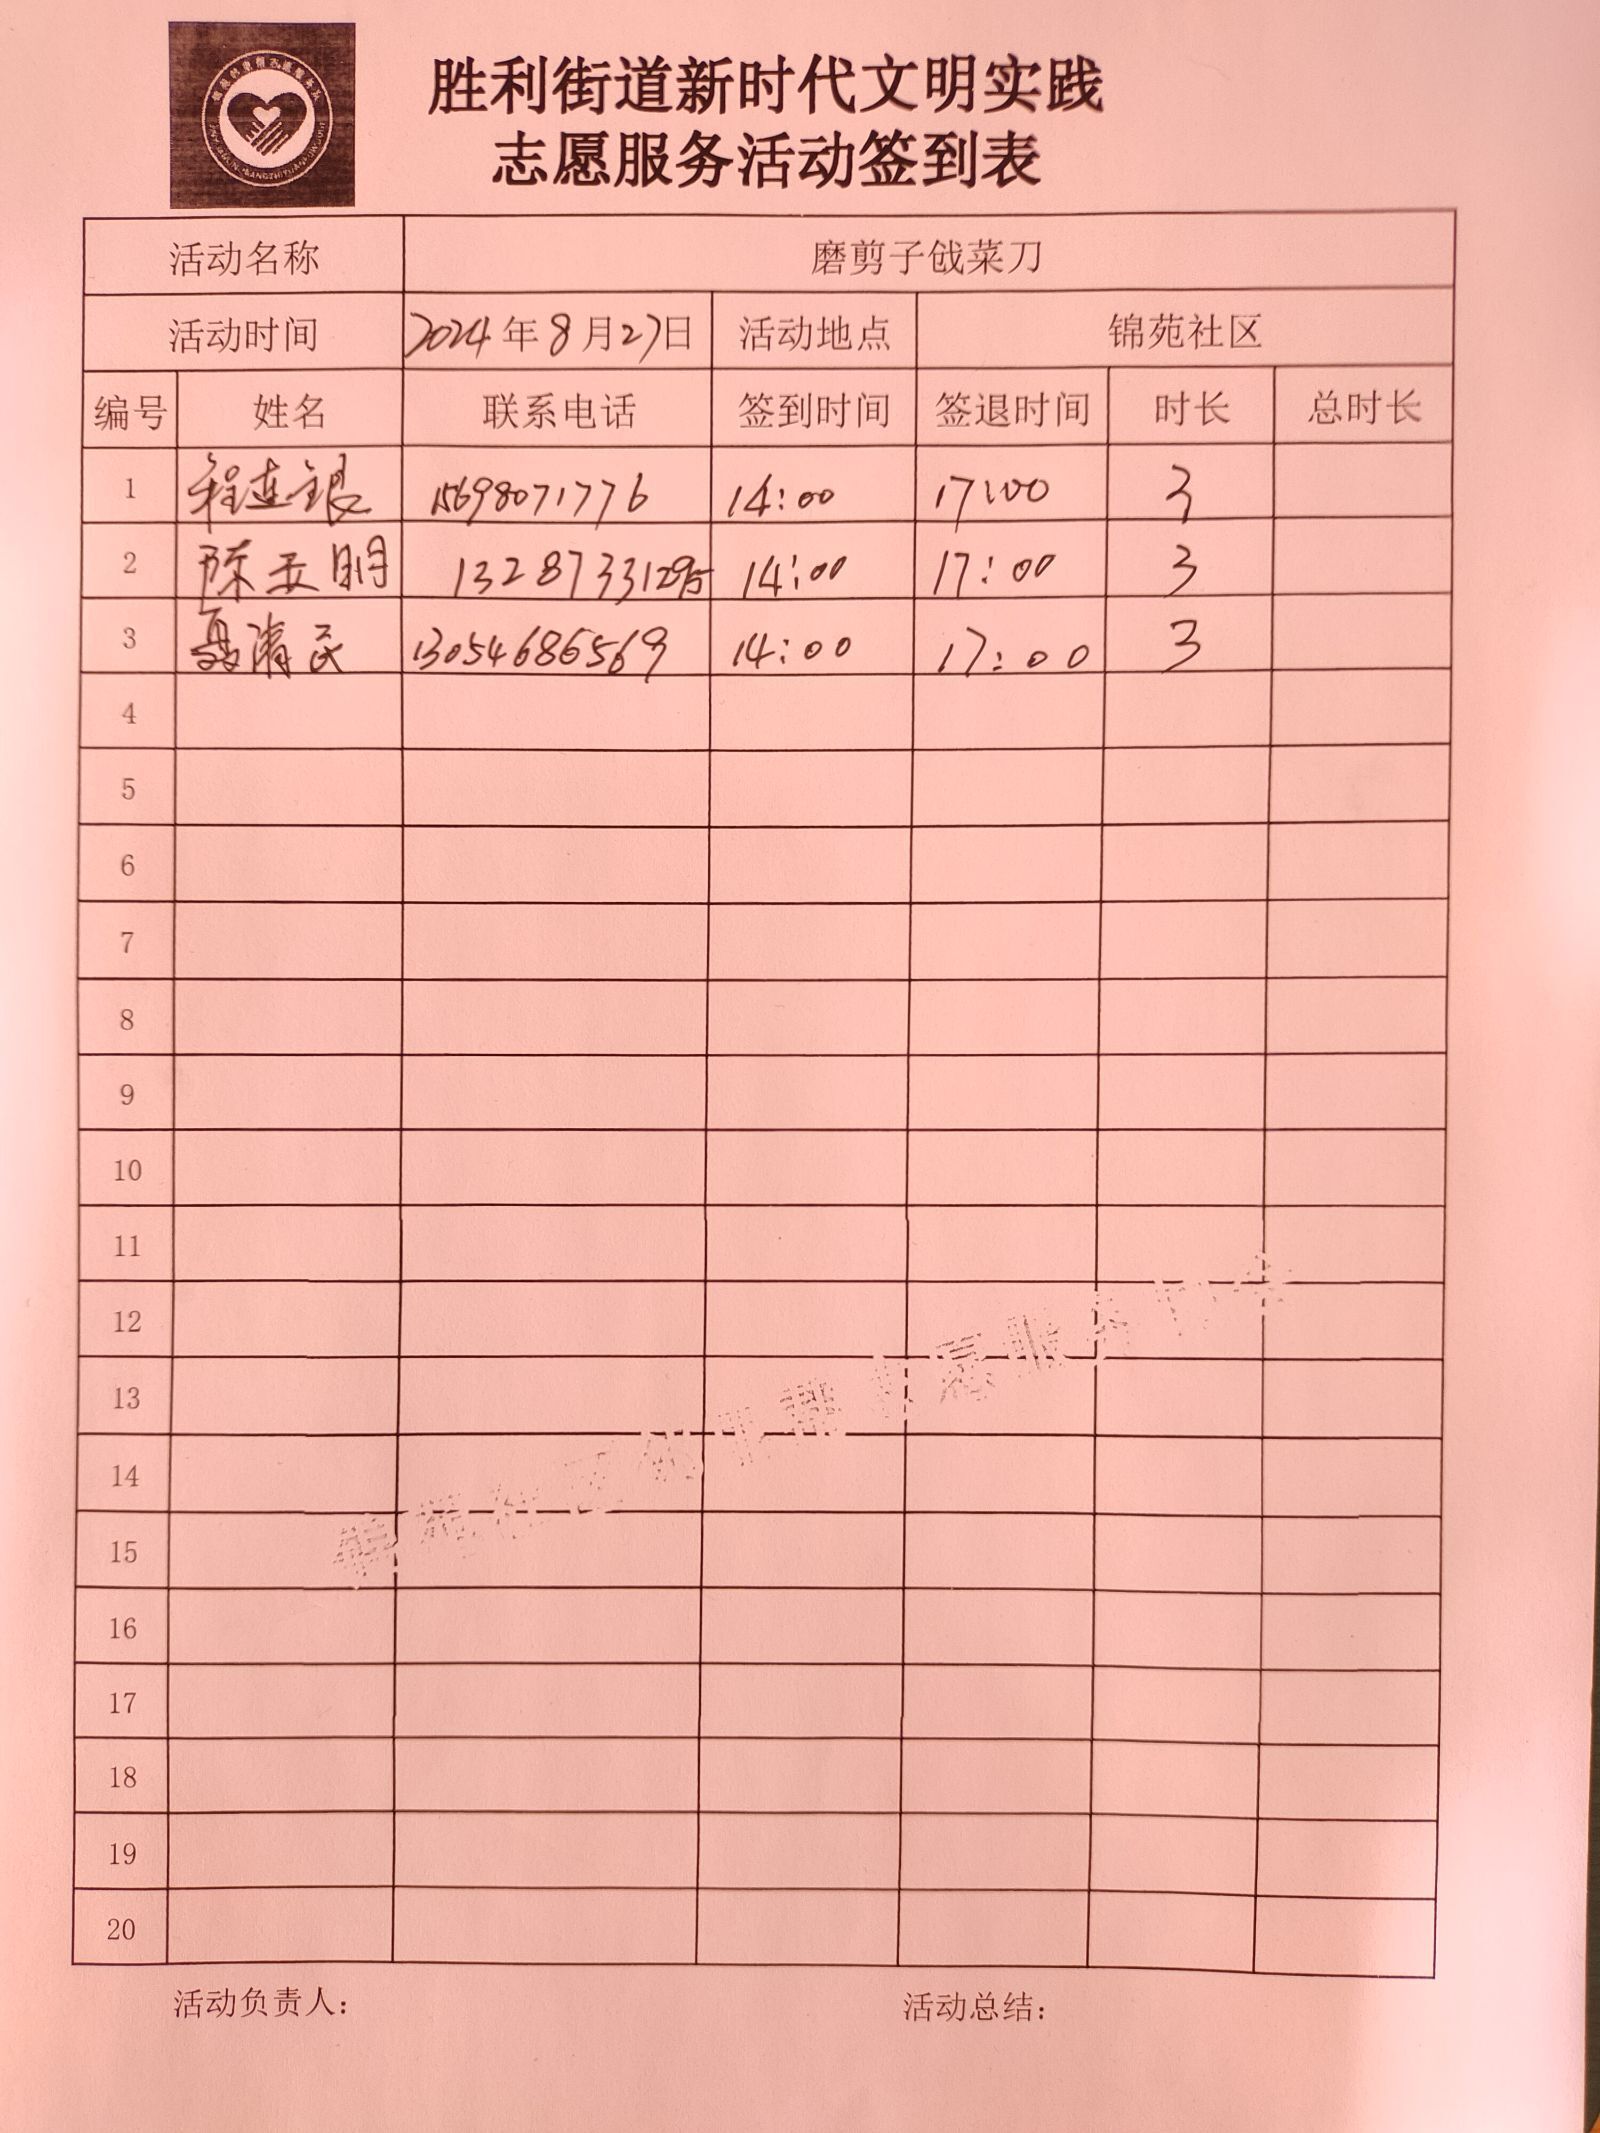 胜利街道新时代文明实践
志愿服务活动签到表
活动名称 磨剪子戗菜刀
活动时间 2024年8月27日 活动地点 锦苑社区
编号 姓名 联系电话 签到时间 签退时间 时长 总时长
1 程连银 15698071776 14:00 17:00 3
2 陈玉明 14:00 17:00 3
3 聂清民 13054686569 14:00 17:00 3
4
5
6
7
8
9
10
11
12
13
14
15
16
17
18
19
20
活动负责人： 活动总结：